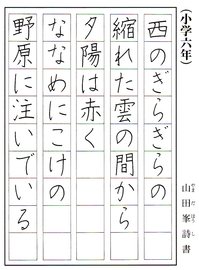 (小学六年)
山田峯詩書
西のぎらぎらの
縮れた雲の間から
夕陽は赤く
ななめにこけの
野原に注いでいる